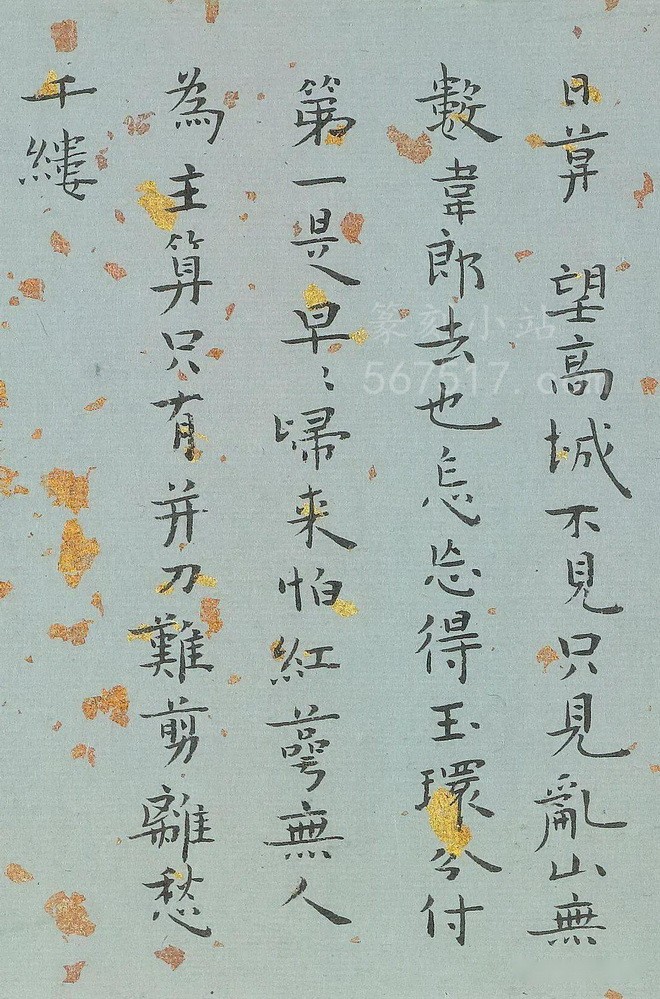 日 望高城不見只見亂山無
數韋郎去也怎忘得玉環分付
第一是早〻歸来怕紅萼無人
為主算只有并刀難剪離愁
千縷
篆刻小站
567517